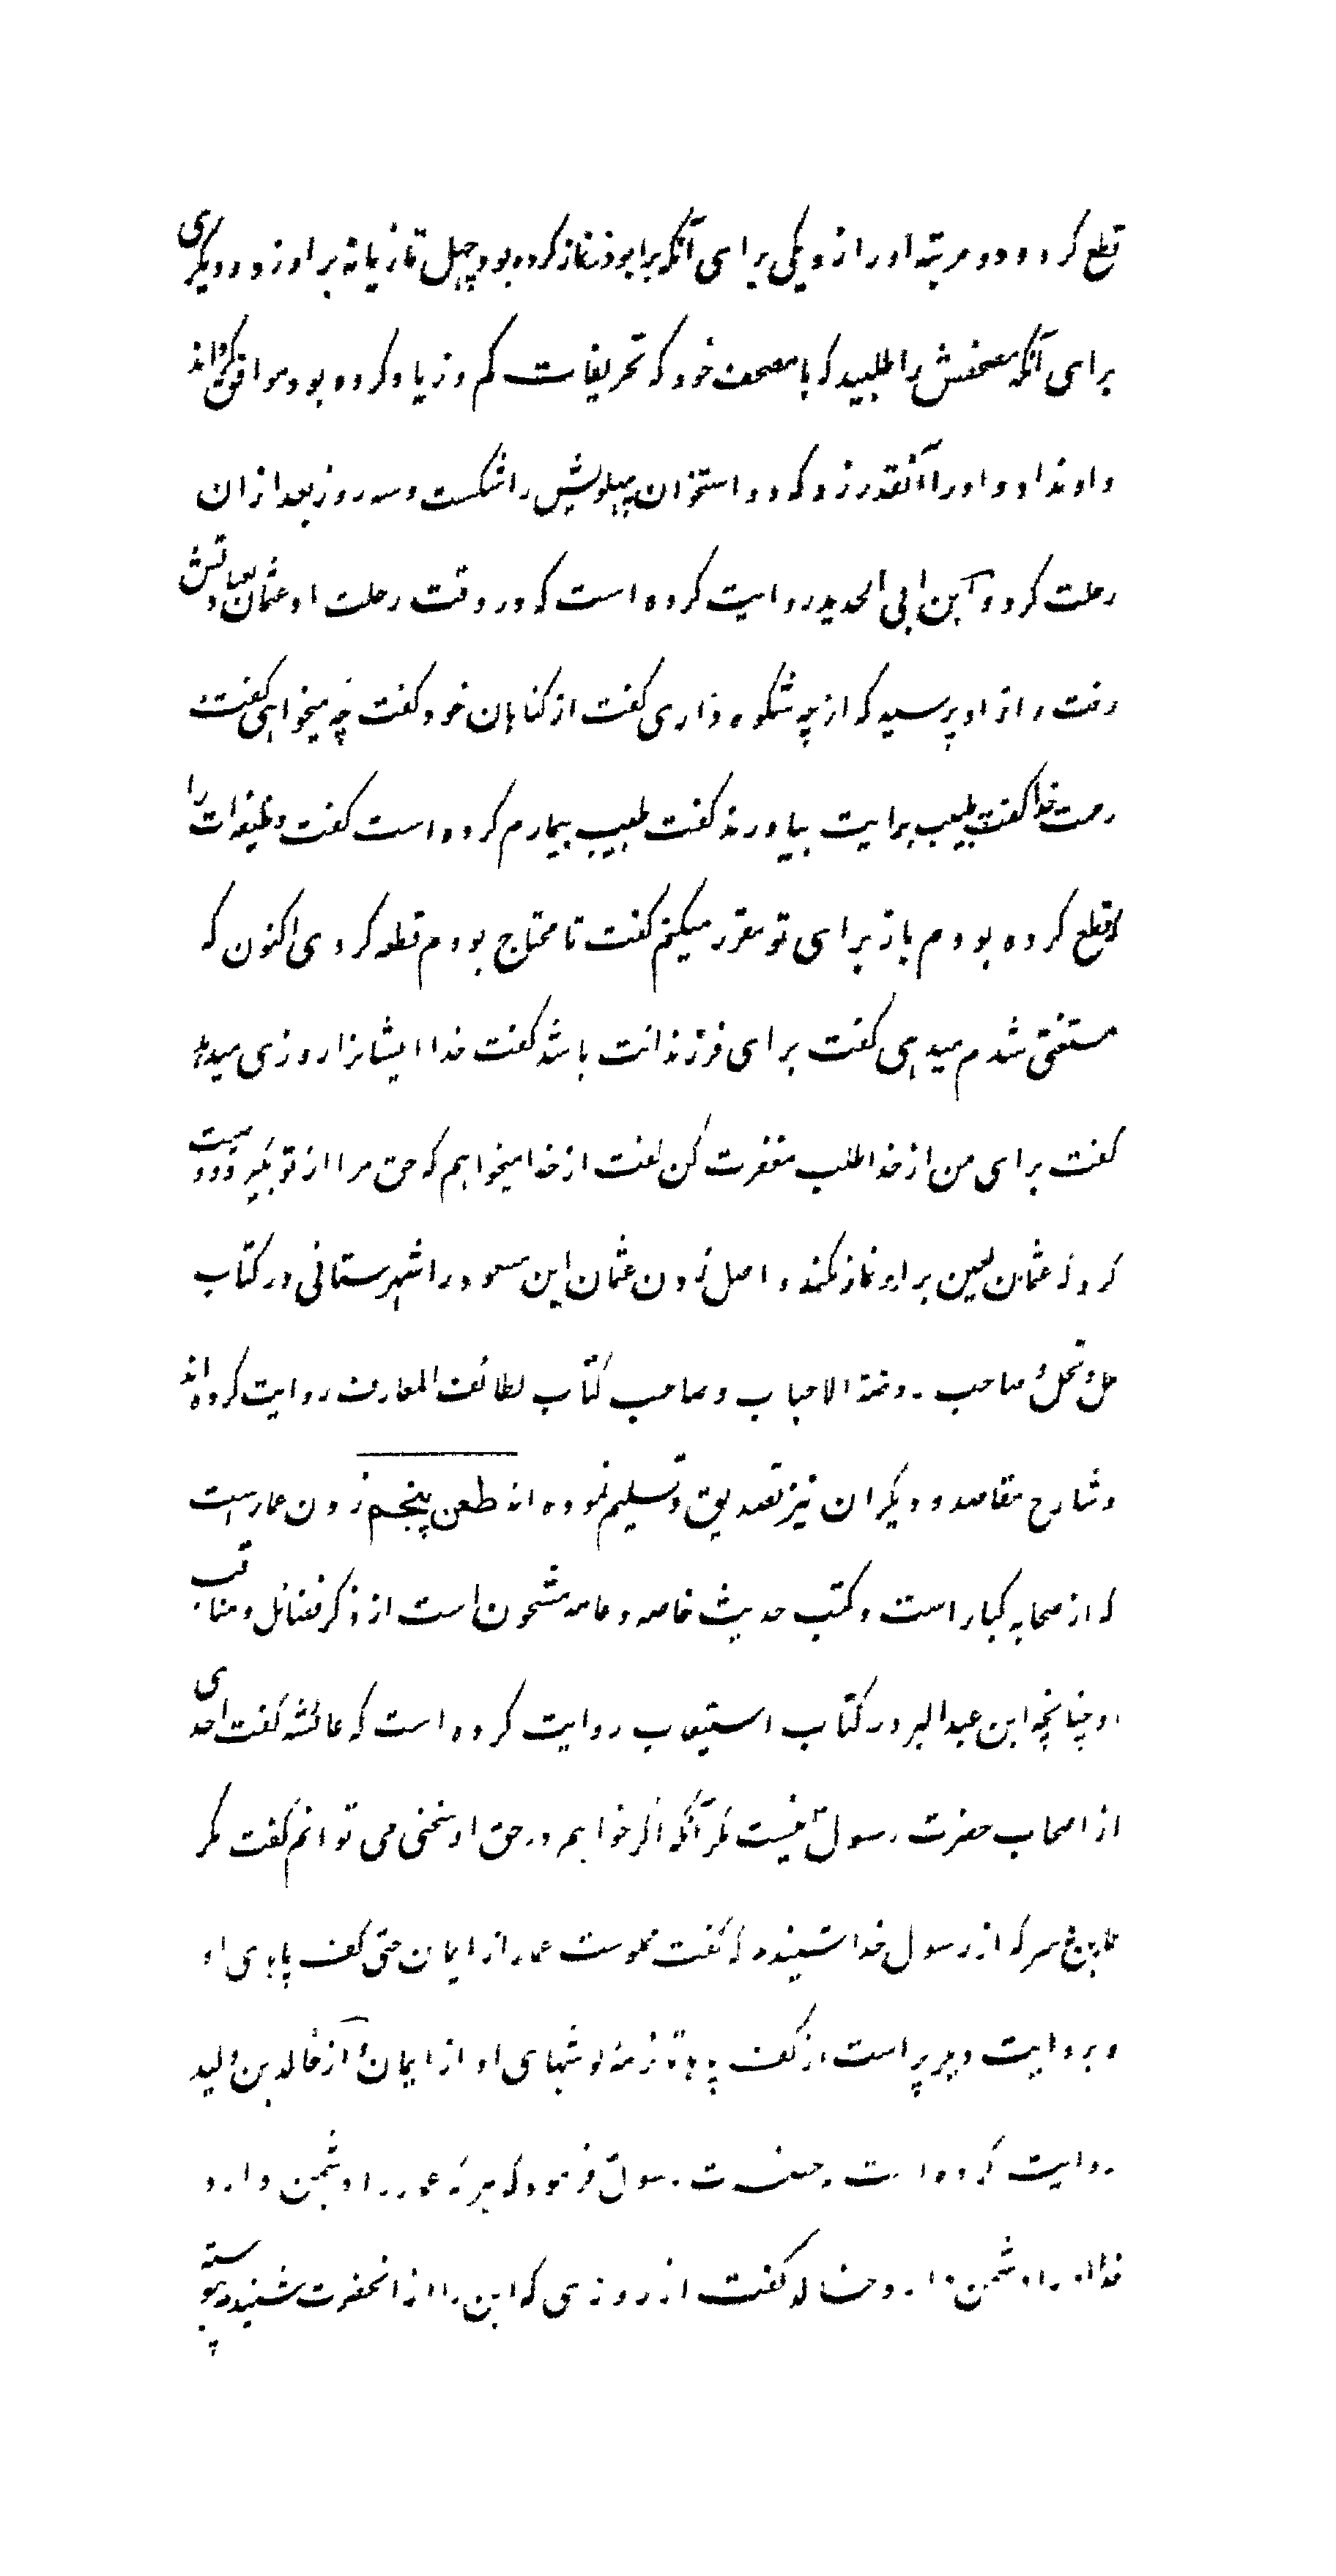 قطع کرد و دو مرتبه او را زد یکی برای آنکه بر ابوذر نماز کرده بود چهل تازیانه بر او زد و دیگری
برای آنکه مصحفش را طلبید که با مصحف خود که تحریفات کم و زیاد کرده بود موافق کرداند
و او نداد و او را آنقدر زد که دو استخوان پهلویش را شکست و سه روز بعد از ان
رحلت کرد و ابن ابی الحدید روایت کرده است که در وقت رحلت او عثمان بعیادتش
رفت و از او پرسید که از چه شکوه داری کفت از کناهان خود کفت چه میخواهی کفت
رحمت خدا کفت طبیب برایت بیاورند کفت طبیب بیمارم کرده است کفت وظیفه ات را
که قطع کرده بودم باز برای تو مقرر میکنم کفت تا محتاج بودم قطع کردی اکنون که
مستغنی شدم میدهی کفت برای فرزندانت باشد کفت خدا ایشانرا روزی میدهد
کفت برای من از خدا طلب مغفرت کن کفت از خدا میخواهم که حق مرا از تو بکیرد و وصیت
کرد که عثمان لعین بر او نماز نکند و اصل زدن عثمان ابن مسعود را شهرستانی در کتاب
ملل و نحل و صاحب روضة الاحباب و صاحب کتاب لطائف المعارف روایت کرده اند
و شارح مقاصد و دیکران نیز تصدیق و تسلیم نموده اند طعن پنجم زدن عمار است
که از صحابه کبار است و کتب حدیث خاصه و عامه مشحون است از ذکر فضائل و مناقب
او چنانچه ابن عبدالبر در کتاب استیعاب روایت کرده است که عائشه کفت احدی
از اصحاب حضرت رسول نیست مکر آنکه اکر خواهم در حق او سخنی می توانم کفت مکر
عمار که از رسول خدا شنیدم که کفت مملوست عمار از ایمان حتی کف پاهای او
و بروایت دیکر پر است از کف پا تا نرمه کوشهای او از ایمان و از خالد بن ولید
روایت کرده است که حضرت رسول فرمود که هر که عمار را دشمن دارد
خدا او را دشمن دارد و خالد کفت از روزی که این را از انحضرت شنیدم پیوسته